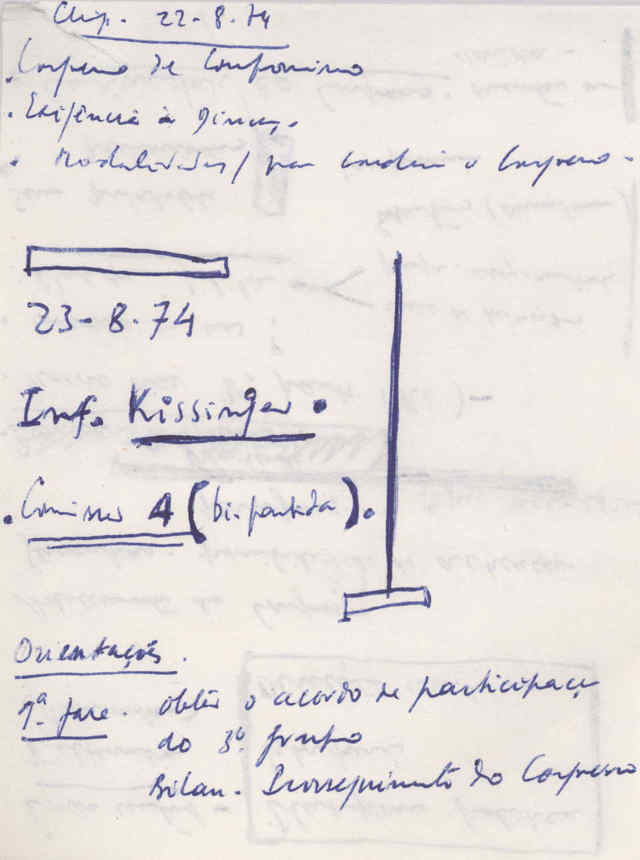 22-8-74
. Congresso de Compromisso
. Exigência à
. Modalidades/ para conduzir o Congresso.
23-8-74
Inf. Kissinger.
. Comissão 4 (bi-partida).
Orientações.
1ª fase. obter o acordo de participaç
do 3º grupo
Bilan - Prosseguimento do Congresso